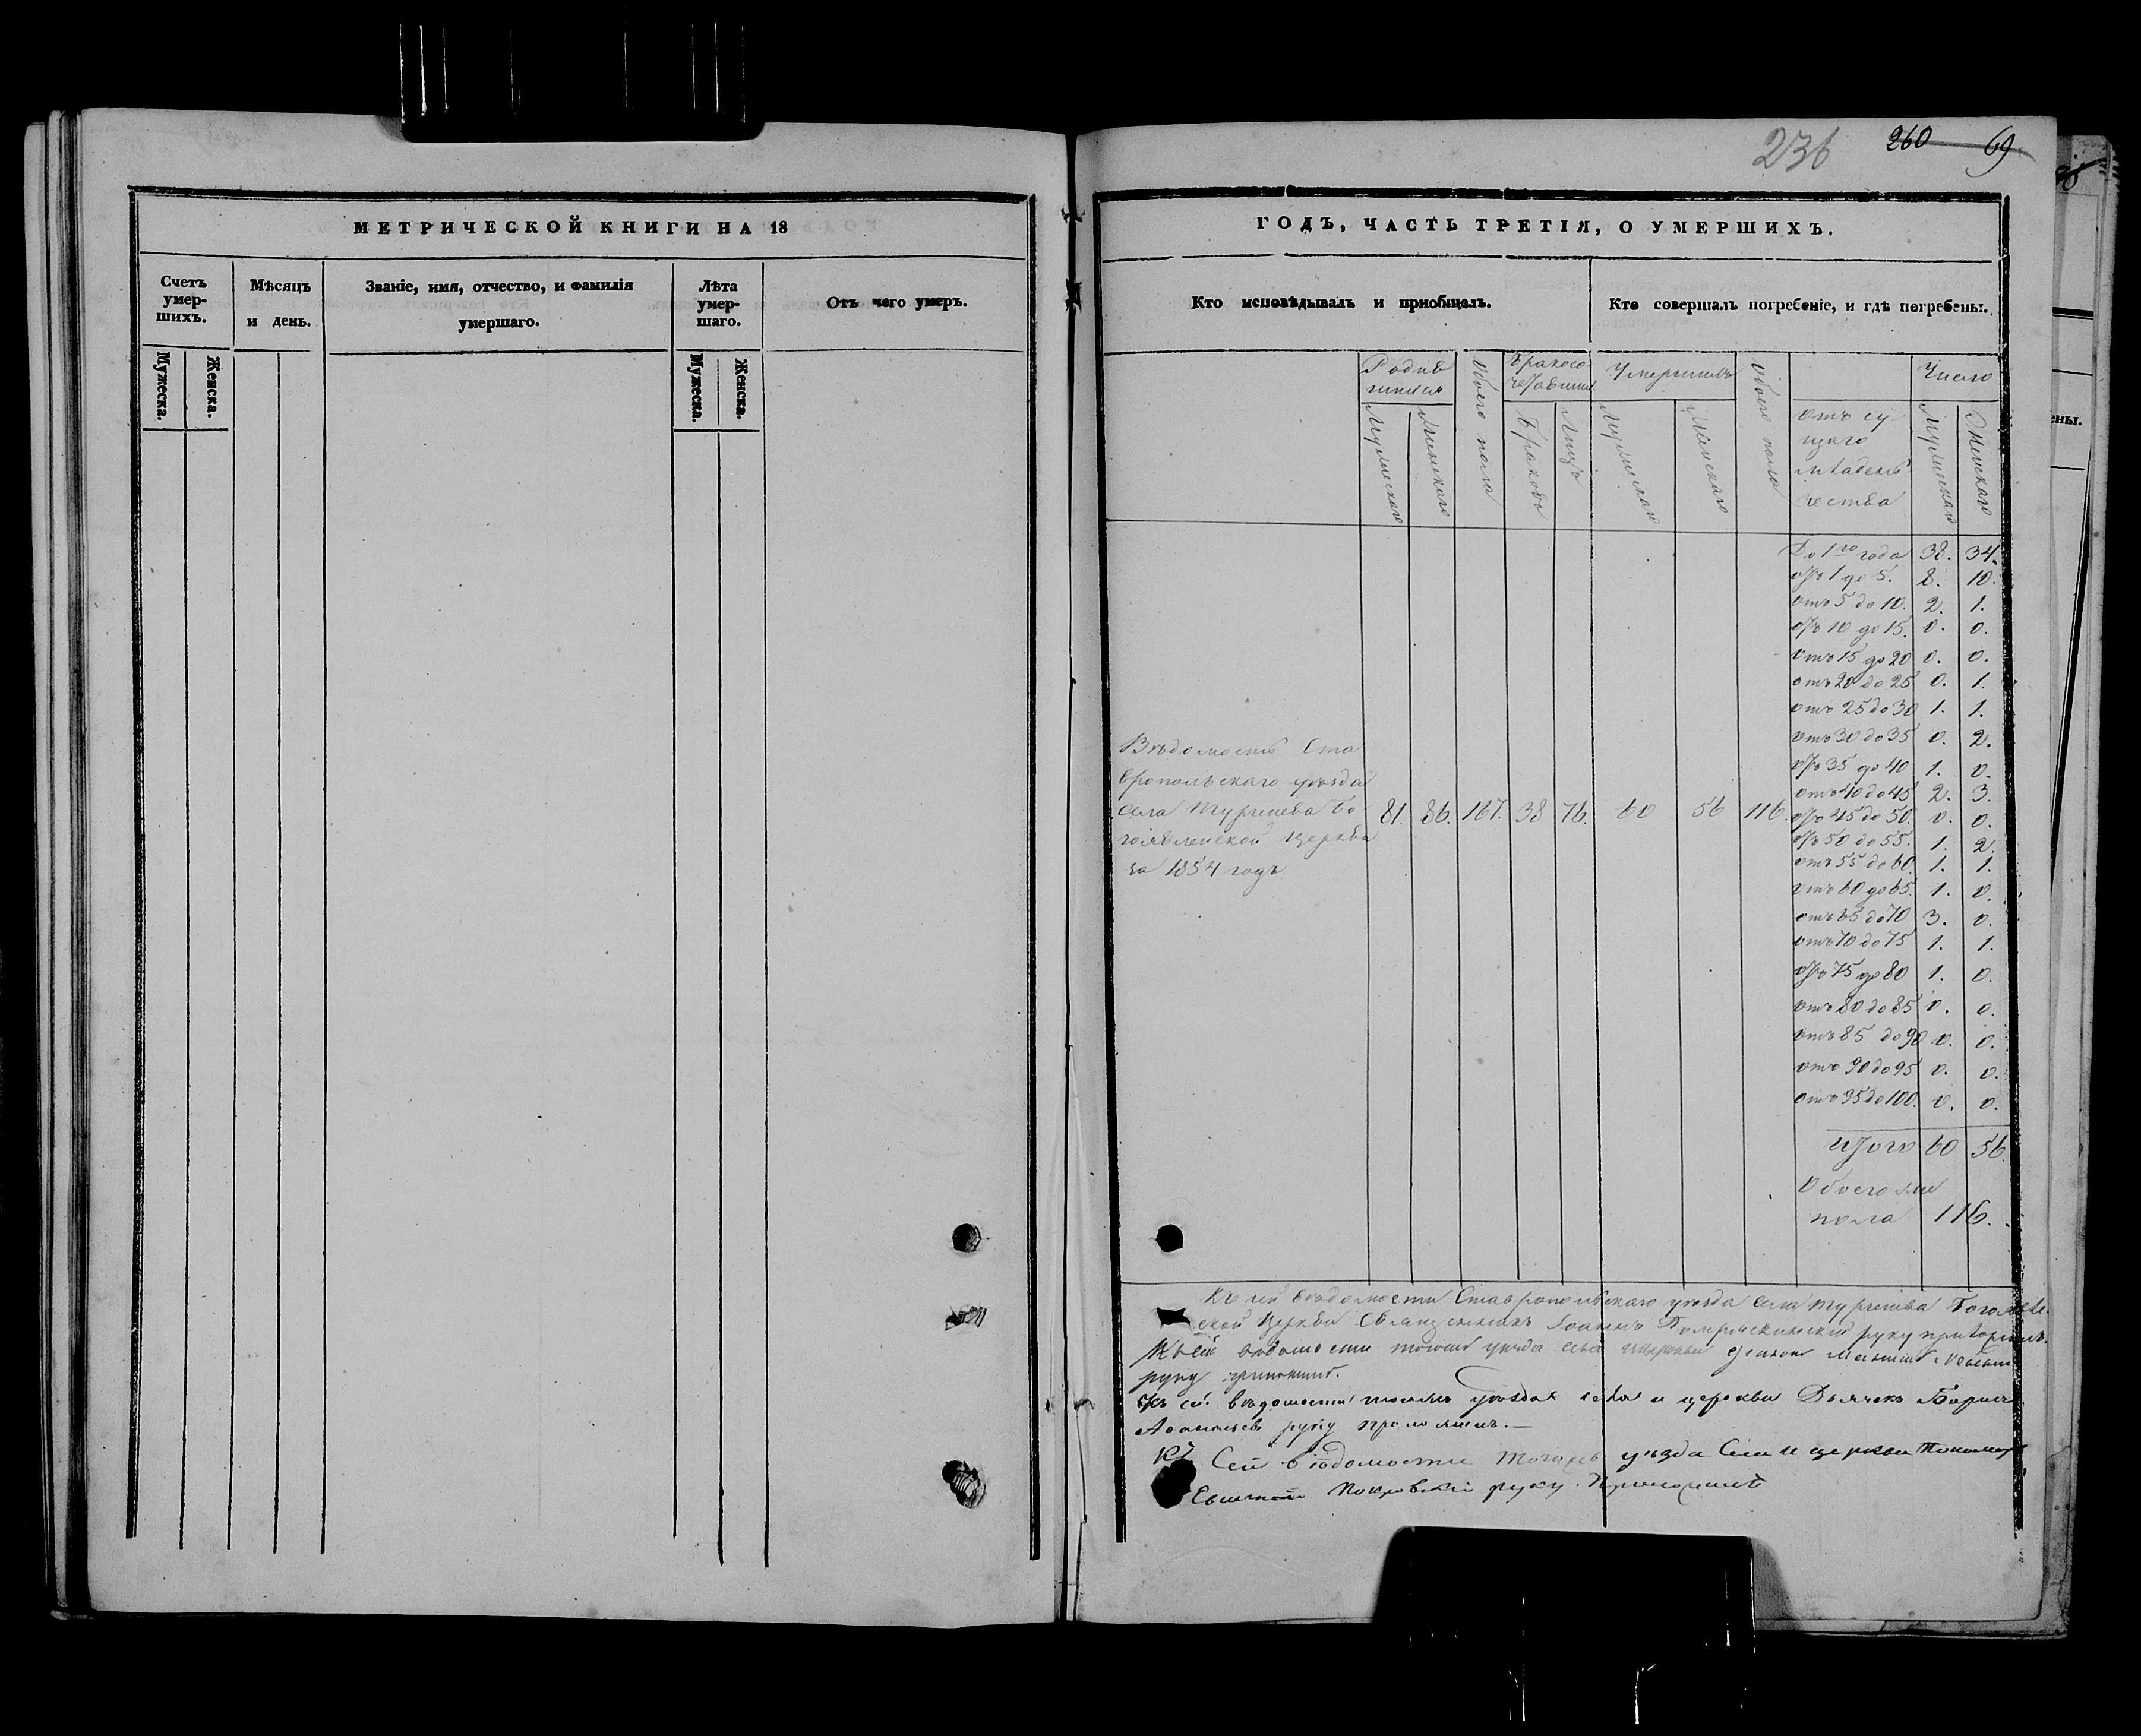 МЕТРИЧЕСКОЙ КНИГИ НА 18
Счетъ умер-шихъ.
Мѣсяцъ и день.
Званіе, имя, отчество, и фамилія умершаго.
Лѣта умер-шаго.
Отъ чего умеръ.
Мужеска.
Женска.
Мужеска.
Женска.
236 260 69
ГОДЪ, ЧАСТЬ ТРЕТІЯ, О УМЕРШИХЪ.
Кто исповѣдывалъ и пріобщалъ.
Кто совершалъ погребеніе, и гдѣ погребены.
ены.
Родив
шихся
Мужескаго
Женскаго
Обоего пола
Бракосо
четавших
Браковъ
Лицъ
Умершихъ
Мужескаго
Женскаго
Обоего пола
отъ су
щаго
младен
чества
Число
Мужескаго
Женскаго
До 1го года 38. 34.
отъ 1 до 5. 8. 10.
отъ 5 до 10. 2. 1.
отъ 10 до 15. 0. 0.
отъ 15 до 20 0. 0.
отъ 20 до 25 0. 1.
отъ 25 до 30 1. 1.
отъ 30 до 35 0. 2.
отъ 35 до 40 1. 0.
отъ 40 до 45 2. 3.
отъ 45 до 50. 0. 0.
отъ 50 до 55. 1. 2.
отъ 55 до 60. 1. 1.
отъ 60 до 65 1. 0.
отъ 65 до 70 3. 0.
отъ 70 до 75 1. 1.
отъ 75 до 80 1. 0.
отъ 80 до 85 0. 0.
отъ 85 до 90 0. 0.
отъ 90 до 95 0. 0.
отъ 95 до 100. 0. 0.
Итого 60 56.
Обоего же
пола 116.
Вѣдомость Ста
вропольскаго уѣзда
села Тургенева Бо
гоявленской церкви
за 1854 годъ
81. 86. 167. 38 76. 60 56 116.
Къ сей вѣдомости Ставропольскаго уѣзда села Тургенева Богоявлен
ской Церкви Священникъ Іоаннъ руку приложилъ.
Къ сей вѣдомости тогожъ уѣзда села и церкви
руку приложилъ.
Къ сей вѣдомости тогожъ уѣзда села и церкви Дьячекъ Борисъ
руку приложилъ.—
Къ Сей вѣдомости тогожъ уѣзда Села и церкви Пономарь
Покровскій руку Приложилъ